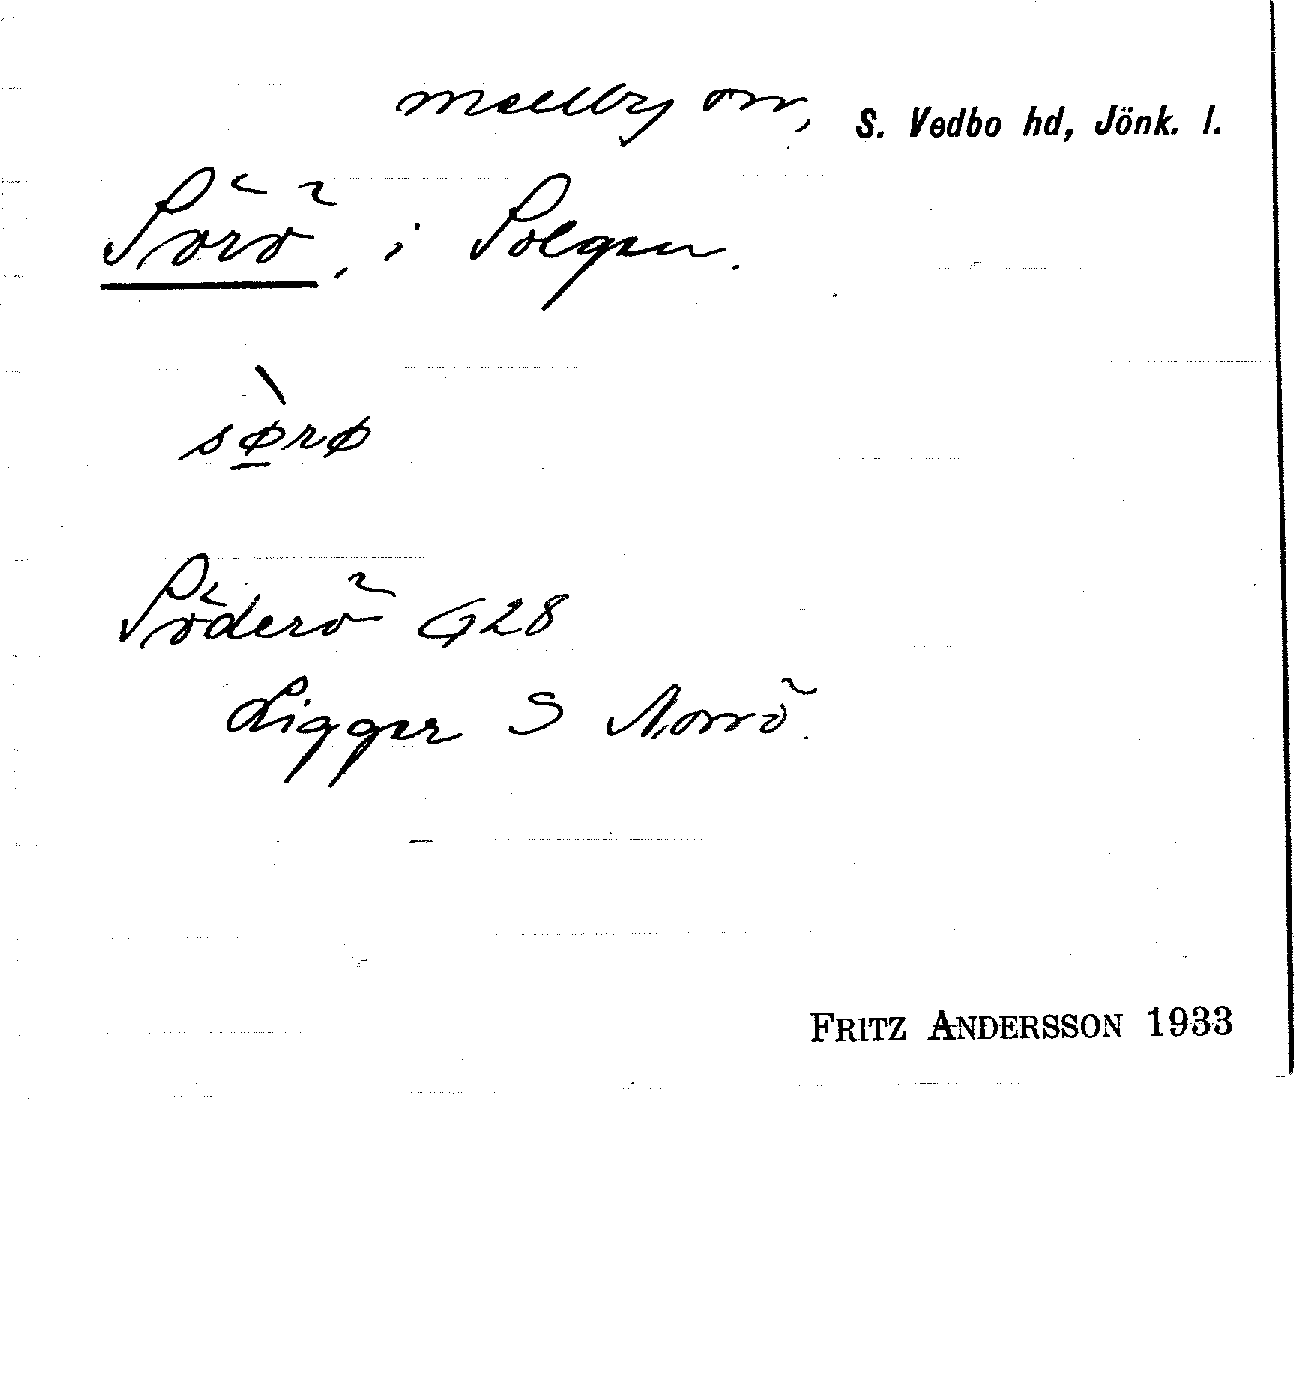 Mellby sn, S. Vedbo hd, Jönk. l.
Sörö, i Solgen.
sø̱̀rø
Söderö G28
Ligger S Norrö.
FRITZ ANDERSSON 1933